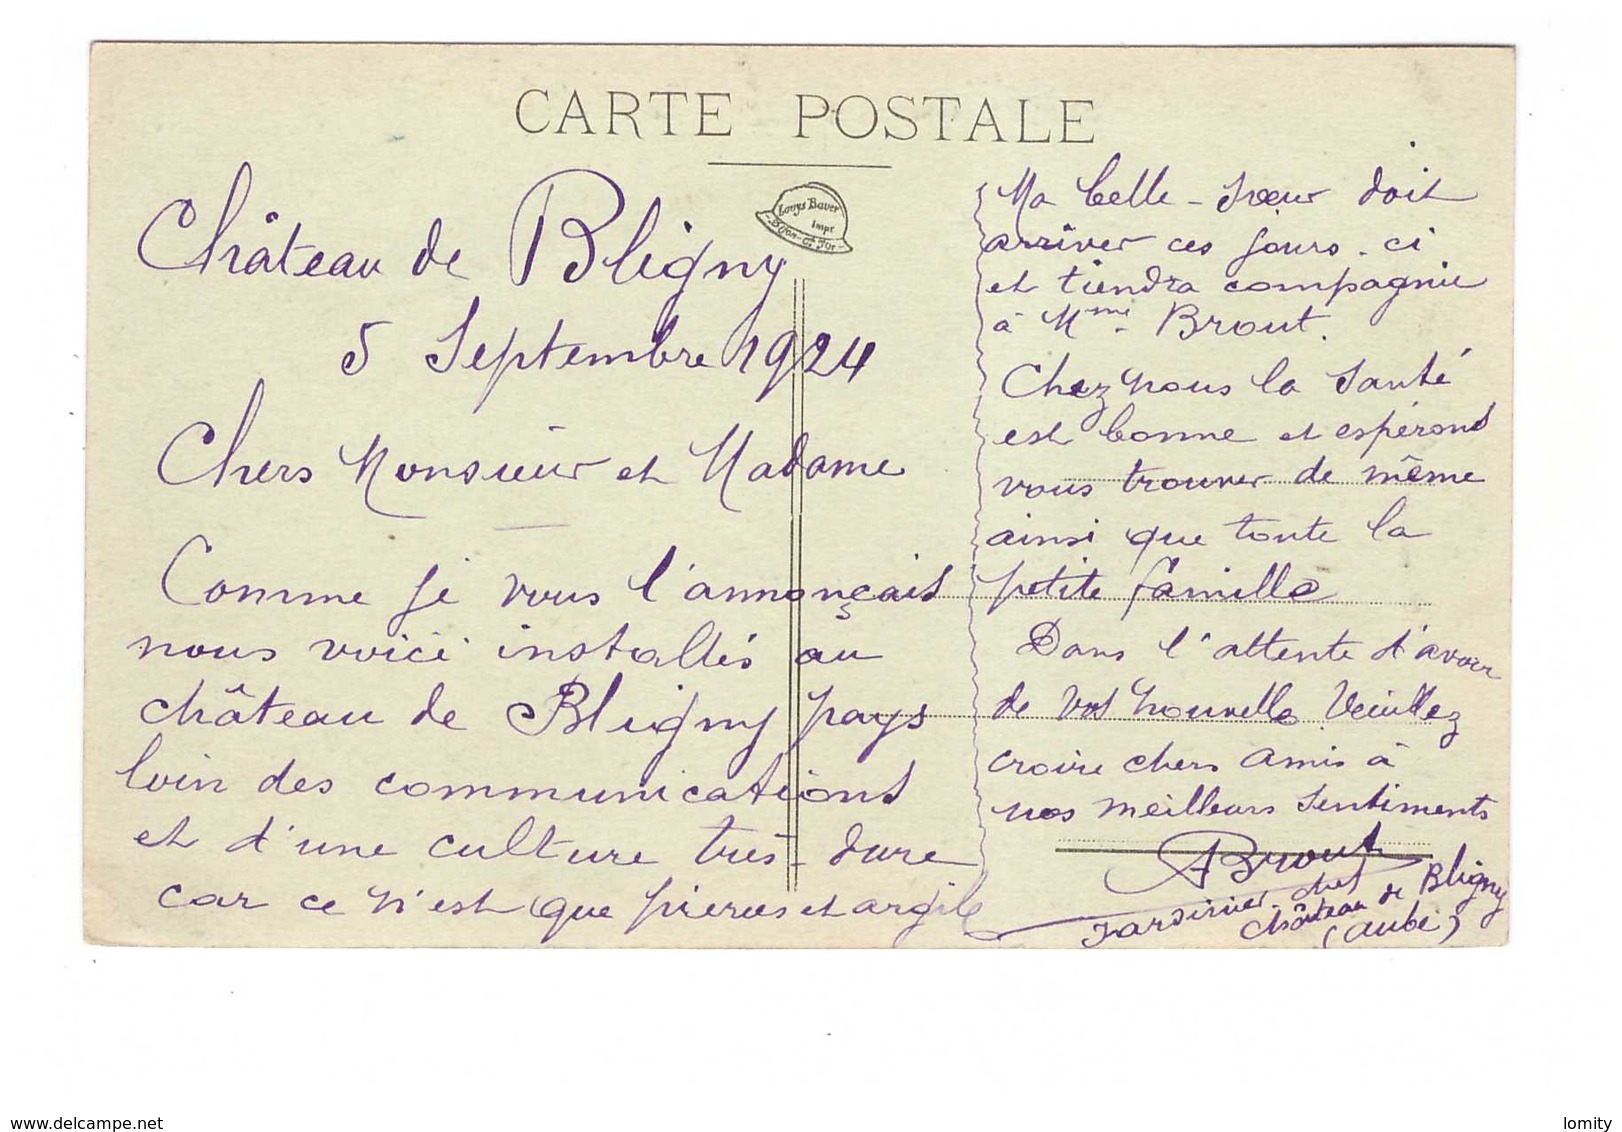 CARTE POSTALE
Louys Bauer
Impr
Dijon-Cte d'Or
Château de Bligny
5 Septembre 1924
Chers Monsieur et Madame
Comme je vous l'annonçais
nous voici installés au
château de Bligny pays
loin des communications
et d'une culture très-dure
car ce n'est que pierres et argile
Ma belle-soeur doit
arriver ces jours-ci
et tiendra compagnie
à Mme Brout.
Chez nous la santé
est bonne et espérons
vous trouver de même
ainsi que toute la
petite famille
Dans l'attente d'avoir
de vos nouvelle Veuillez
croire chers amis à
nos meilleurs sentiments
ABrout
Jardinier chef
Château de Bligny
(Aube)
www.delcampe.net
lomity